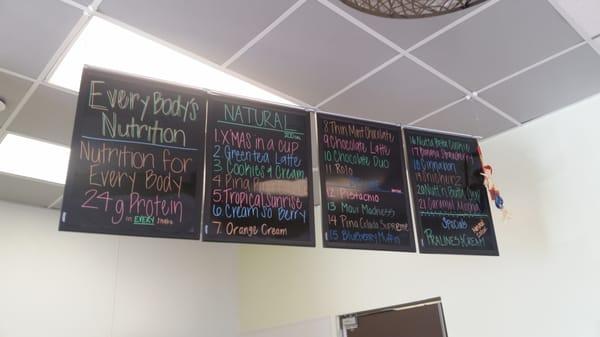 EveryBody's
Nutrition
Nutrition for
Every Body
24g Protein
in EVERY shake
NATURAL
1 XMAS in a CUP
2 Greentea Latte
3 Cookies & Cream
4 Pina
5 Tropical Sunrise
6 Cream So Berry
7 Orange Cream
8 Thin Mint Chocolate
9 Chocolate Latte
10 Chocolate Duo
11 Rolo
12 Pistachio
13 Maui Madness
14 Pina Colada Supreme
15 Blueberry Muffin
16 Nutty Cookie
17 Banana Strawberry
18 Cinnabun
19
20 Nutt'n Butta
21 Caramel Mocha
Specials
Pralines & Cream